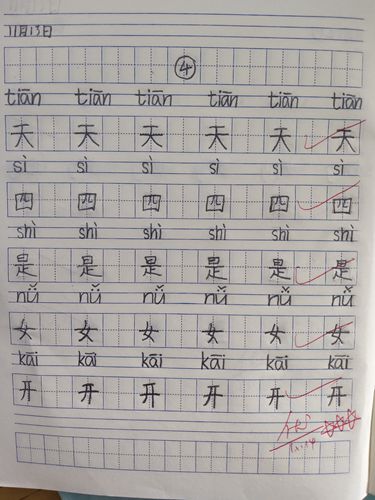 11月13日
④
tiān tiān tiān tiān tiān tiān
天 天 天 天 天 天
sì sì sì sì sì sì
四 四 四 四 四 四
shì shì shì shì shì shì
是 是 是 是 是 是
nǚ nǚ nǚ nǚ nǚ nǚ
女 女 女 女 女 女
kāi kāi kāi kāi kāi kāi
开 开 开 开 开 开
优
11.14